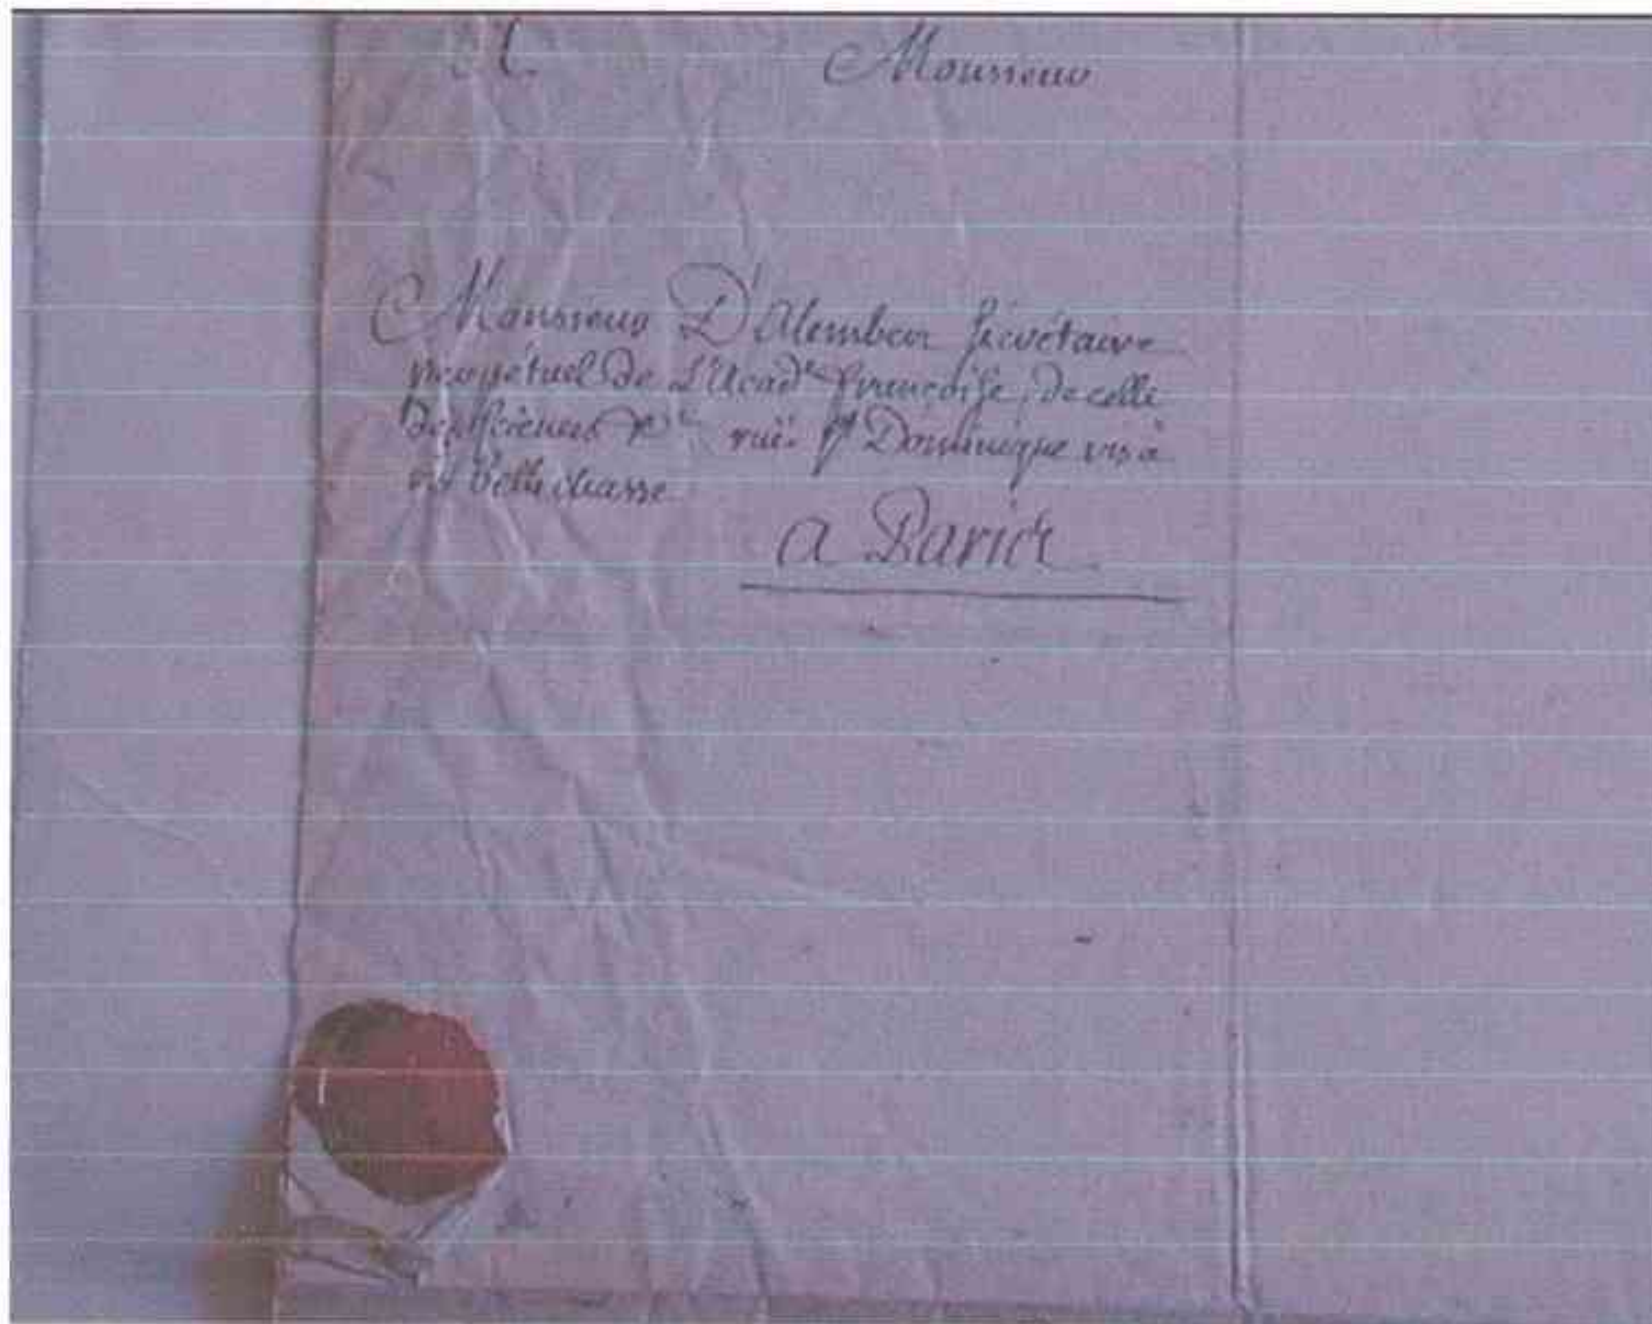 A Monsieur
Monsieur D'Alembert Sécrétaire
perpétuel de L'Acad.e françoise, de celle
des sciences &c.a ruë St Dominique vis à
vis belle chasse
a Paris